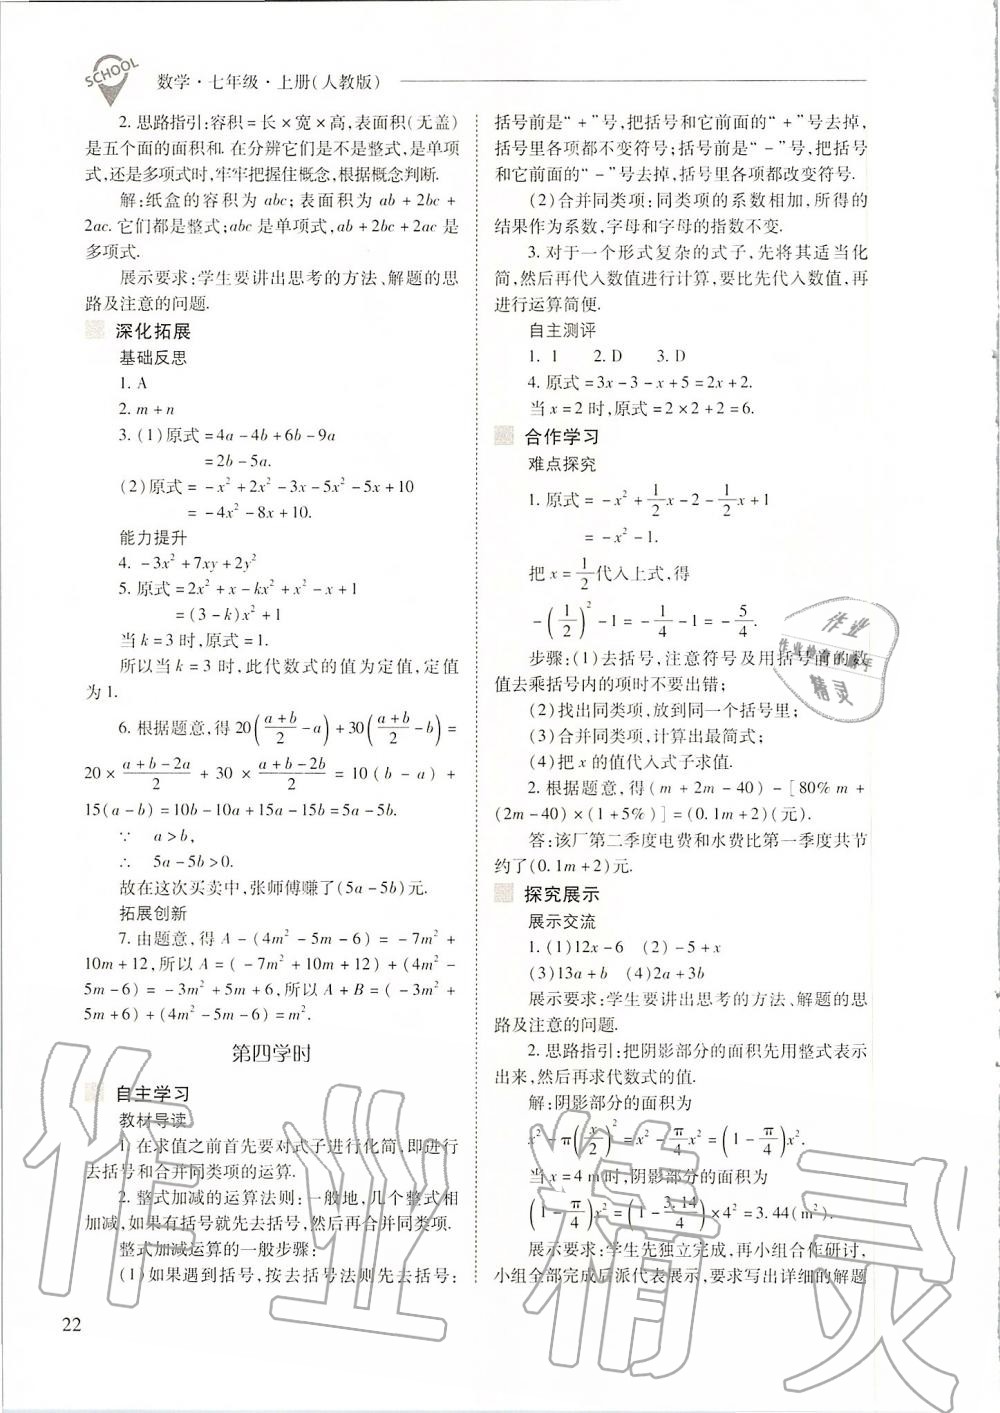 SCHOOL
数学·七年级·上册(人教版)
2. 思路指引:容积=长×宽×高,表面积(无盖)
是五个面的面积和. 在分辨它们是不是整式,是单项
式,还是多项式时,牢牢把握住概念,根据概念判断.
解:纸盒的容积为 abc;表面积为 ab+2bc+
2ac. 它们都是整式;abc 是单项式,ab+2bc+2ac 是
多项式.
展示要求:学生要讲出思考的方法、解题的思
路及注意的问题.
深化拓展
基础反思
1. A
2. m+n
3. (1)原式=4a-4b+6b-9a
=2b-5a.
(2)原式=-x²+2x²-3x-5x²-5x+10
=-4x²-8x+10.
能力提升
4. -3x²+7xy+2y²
5. 原式=2x²+x-kx²+x²-x+1
=(3-k)x²+1
当 k=3 时,原式=1.
所以当 k=3 时,此代数式的值为定值,定值
为 1.
6. 根据题意,得 20((a+b)/2-a)+30((a+b)/2-b)=
20×(a+b-2a)/2+30×(a+b-2b)/2=10(b-a)+
15(a-b)=10b-10a+15a-15b=5a-5b.
∵ a>b,
∴ 5a-5b>0.
故在这次买卖中,张师傅赚了(5a-5b)元.
拓展创新
7. 由题意,得 A-(4m²-5m-6)=-7m²+
10m+12,所以 A=(-7m²+10m+12)+(4m²-
5m-6)=-3m²+5m+6,所以 A+B=(-3m²+
5m+6)+(4m²-5m-6)=m².
第四学时
自主学习
教材导读
1. 在求值之前首先要对式子进行化简,即进行
去括号和合并同类项的运算.
2. 整式加减的运算法则:一般地,几个整式相
加减,如果有括号就先去括号,然后再合并同类项.
整式加减运算的一般步骤:
(1)如果遇到括号,按去括号法则先去括号:
括号前是“+”号,把括号和它前面的“+”号去掉,
括号里各项都不变符号;括号前是“-”号,把括号
和它前面的“-”号去掉,括号里各项都改变符号.
(2)合并同类项:同类项的系数相加,所得的
结果作为系数,字母和字母的指数不变.
3. 对于一个形式复杂的式子,先将其适当化
简,然后再代入数值进行计算,要比先代入数值,再
进行运算简便.
自主测评
1. 1 2. D 3. D
4. 原式=3x-3-x+5=2x+2.
当 x=2 时,原式=2×2+2=6.
合作学习
难点探究
1. 原式=-x²+1/2x-2-1/2x+1
=-x²-1.
把 x=1/2代入上式,得
-(1/2)²-1=-1/4-1=-5/4.
步骤:(1)去括号,注意符号及用括号前的数
值去乘括号内的项时不要出错;
(2)找出同类项,放到同一个括号里;
(3)合并同类项,计算出最简式;
(4)把 x 的值代入式子求值.
2. 根据题意,得(m+2m-40)-[80% m+
(2m-40)×(1+5%)]=(0.1m+2)(元).
答:该厂第二季度电费和水费比第一季度共节
约了(0.1m+2)元.
探究展示
展示交流
1. (1)12x-6 (2)-5+x
(3)13a+b (4)2a+3b
展示要求:学生要讲出思考的方法、解题的思
路及注意的问题.
2. 思路指引:把阴影部分的面积先用整式表示
出来,然后再求代数式的值.
解:阴影部分的面积为
x²-π(x/2)²=x²-π/4x²=(1-π/4)x².
当 x=4 m时,阴影部分的面积为
(1-π/4)x²=(1-3.14/4)×4²=3.44(m²).
展示要求:学生先独立完成,再小组合作研讨,
小组全部完成后派代表展示,要求写出详细的解题
22
作业精灵
作业
精灵